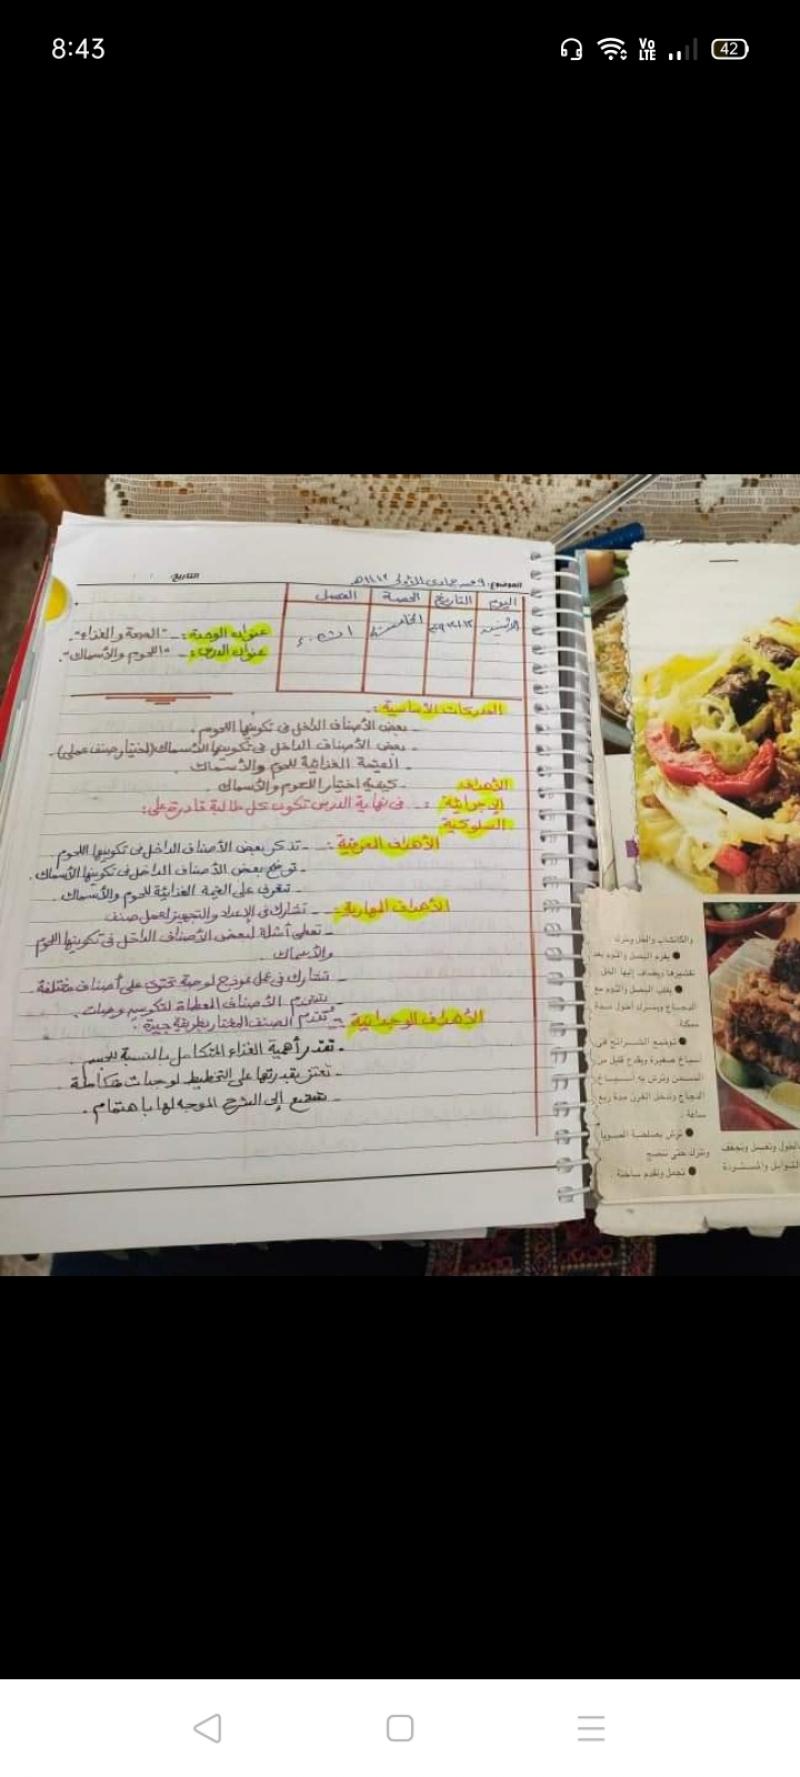 8:43
Vo LTE
42
الموضوع:
التاريخ:
اليوم
التاريخ
الحصة
الفصل
الاثنين
عنوان الوحدة :- "الصحة والغذاء".
عنوان الدرس :- "اللحوم والأسماك".
المدركات الأساسية :-
- بعض الأصناف الداخل فى تكوينها اللحوم.
- بعض الأصناف الداخل فى تكوينها الأسماك (اختيار صنف عملى).
- القيمة الغذائية للحوم والأسماك.
- كيفية اختيار اللحوم والأسماك.
الأهداف
الإجرائية :- فى نهاية الدرس تكون كل طالبة قادرة على:
السلوكية
الأهداف المعرفية :- - تذكر بعض الأصناف الداخل فى تكوينها اللحوم.
- توضح بعض الأصناف الداخل فى تكوينها الأسماك.
- تتعرف على القيمة الغذائية للحوم والأسماك.
الأهداف المهارية :- - تشارك فى الإعداد والتجهيز لعمل صنف
- تعطى أمثلة لبعض الأصناف الداخل فى تكوينها اللحوم
والأسماك.
- تشارك فى عمل نموذج لوجبة تحتوى على أصناف مختلفة.
- تستخدم الأصناف المعطاة لتكوين وجبات.
الأهداف الوجدانية :- - تقدم الصنف المختار بطريقة جيدة.
- تقدر أهمية الغذاء المتكامل بالنسبة للجسم.
- تعتز بقدرتها على التخطيط لوجبات متكاملة.
- تستمع إلى الشرح الموجه لها باهتمام.
● يفرم البصل والثوم بعد
تقشيرها ويضاف إليها الخل
● يقلب البصل والثوم مع
الدجاج ويترك أطول مدة
ممكنة.
● توضع الشرائح فى
أسياخ صغيرة
الدجاج وتدخل الفرن مدة ربع
ساعة.
● ترش بصلصة الصويا
وتترك حتى تنضج
● تجمل وتقدم ساخنة.